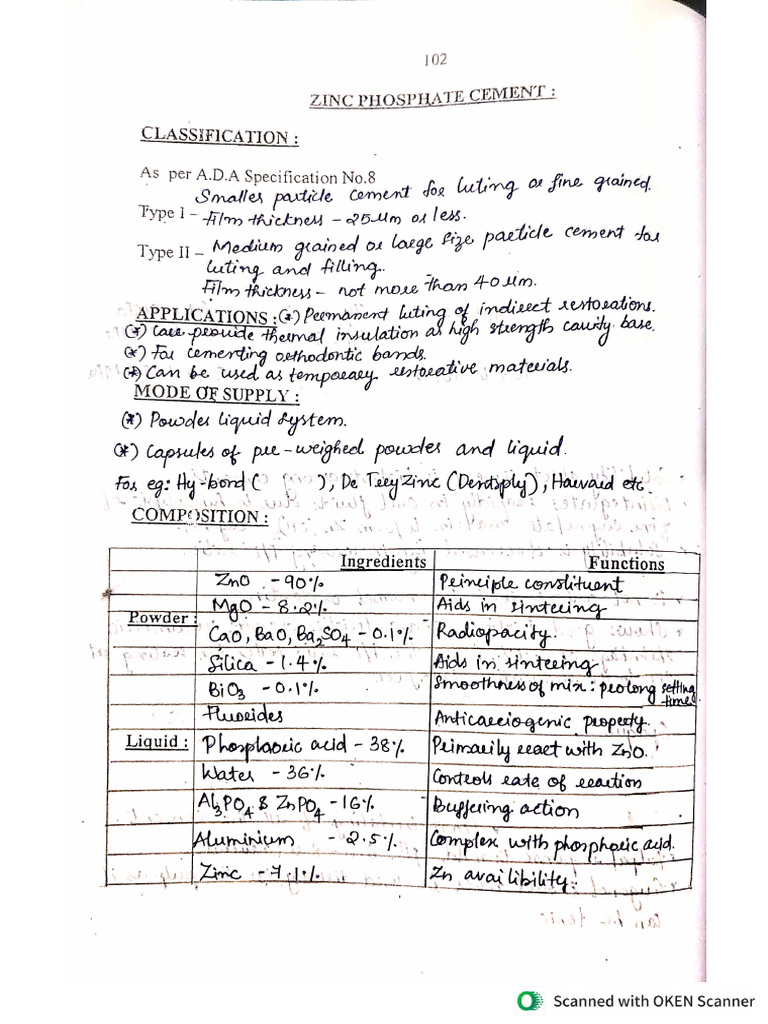 102
ZINC PHOSPHATE CEMENT :
CLASSIFICATION :
As per A.D.A Specification No.8
Smaller particle cement for luting or fine grained.
Type I – Film thickness – 25 µm or less.
Type II – Medium grained or large size particle cement for
luting and filling.
Film thickness – not more than 40 µm.
APPLICATIONS : (*) Permanent luting of indirect restorations.
(*) Care provide thermal insulation as high strength cavity base.
(*) For cementing orthodontic bands.
(*) Can be used as temporary restorative materials.
MODE OF SUPPLY :
(*) Powder liquid system.
(*) Capsules of pre-weighed powder and liquid.
For eg: Hy-bond ( ), De Trey Zinc (Dentsply), Harvard etc.
COMPOSITION :
Ingredients Functions
ZnO - 90% Principle constituent
Powder : MgO - 8.2% Aids in sintering
CaO, BaO, Ba2SO4 - 0.1% Radiopacity.
Silica - 1.4% Aids in sintering
BiO3 - 0.1% Smoothness of mix : prolong setting
time
Fluorides Anticarciogenic property.
Liquid : Phosphoric acid - 38% Primarily react with ZnO.
Water - 36% Controls rate of reaction
Al3PO4 & ZnPO4 - 16% Buffering action
Aluminium - 2.5% Complex with phosphoric acid.
Zinc - 7.1% Zn availibility.
Scanned with OKEN Scanner